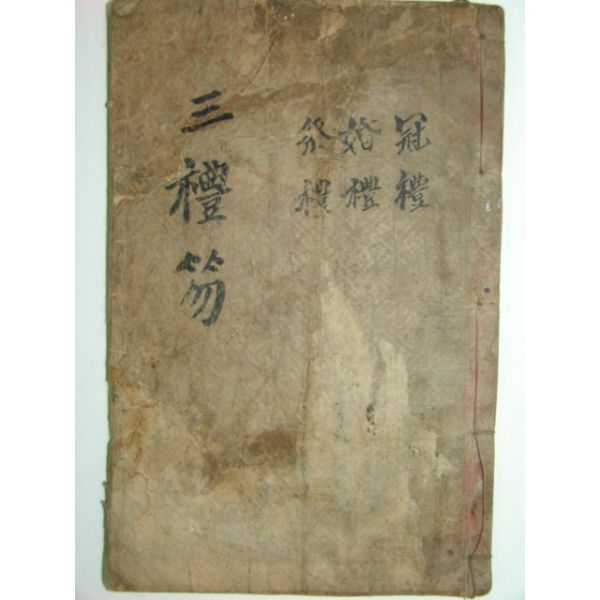 冠禮
婚禮
祭禮
三禮笏